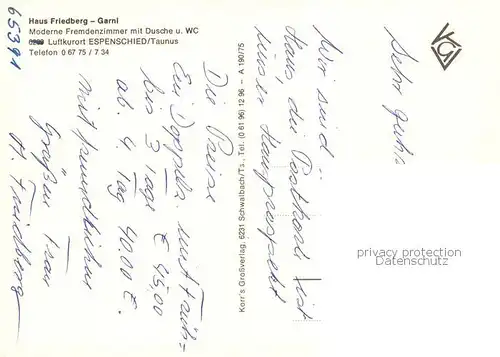 65391
Haus Friedberg – Garni
Moderne Fremdenzimmer mit Dusche u. WC
Luftkurort ESPENSCHIED/Taunus
Telefon 0 67 75 / 7 34
Sehr
Wir sind
Haus, die Postkarte ist
unser Hausprospekt
Die Preise
Ein Doppelz. mit Früh=
bis 3 Tage € 45,00
ab. 4. Tag 40.00 €.
Mit freundlichen
Grüßen Frau
H. Friedberg
Korr's Großverlag, 6231 Schwalbach/Ts., Tel. (0 61 96) 12 96 – A 190/75
privacy protection
Datenschutz